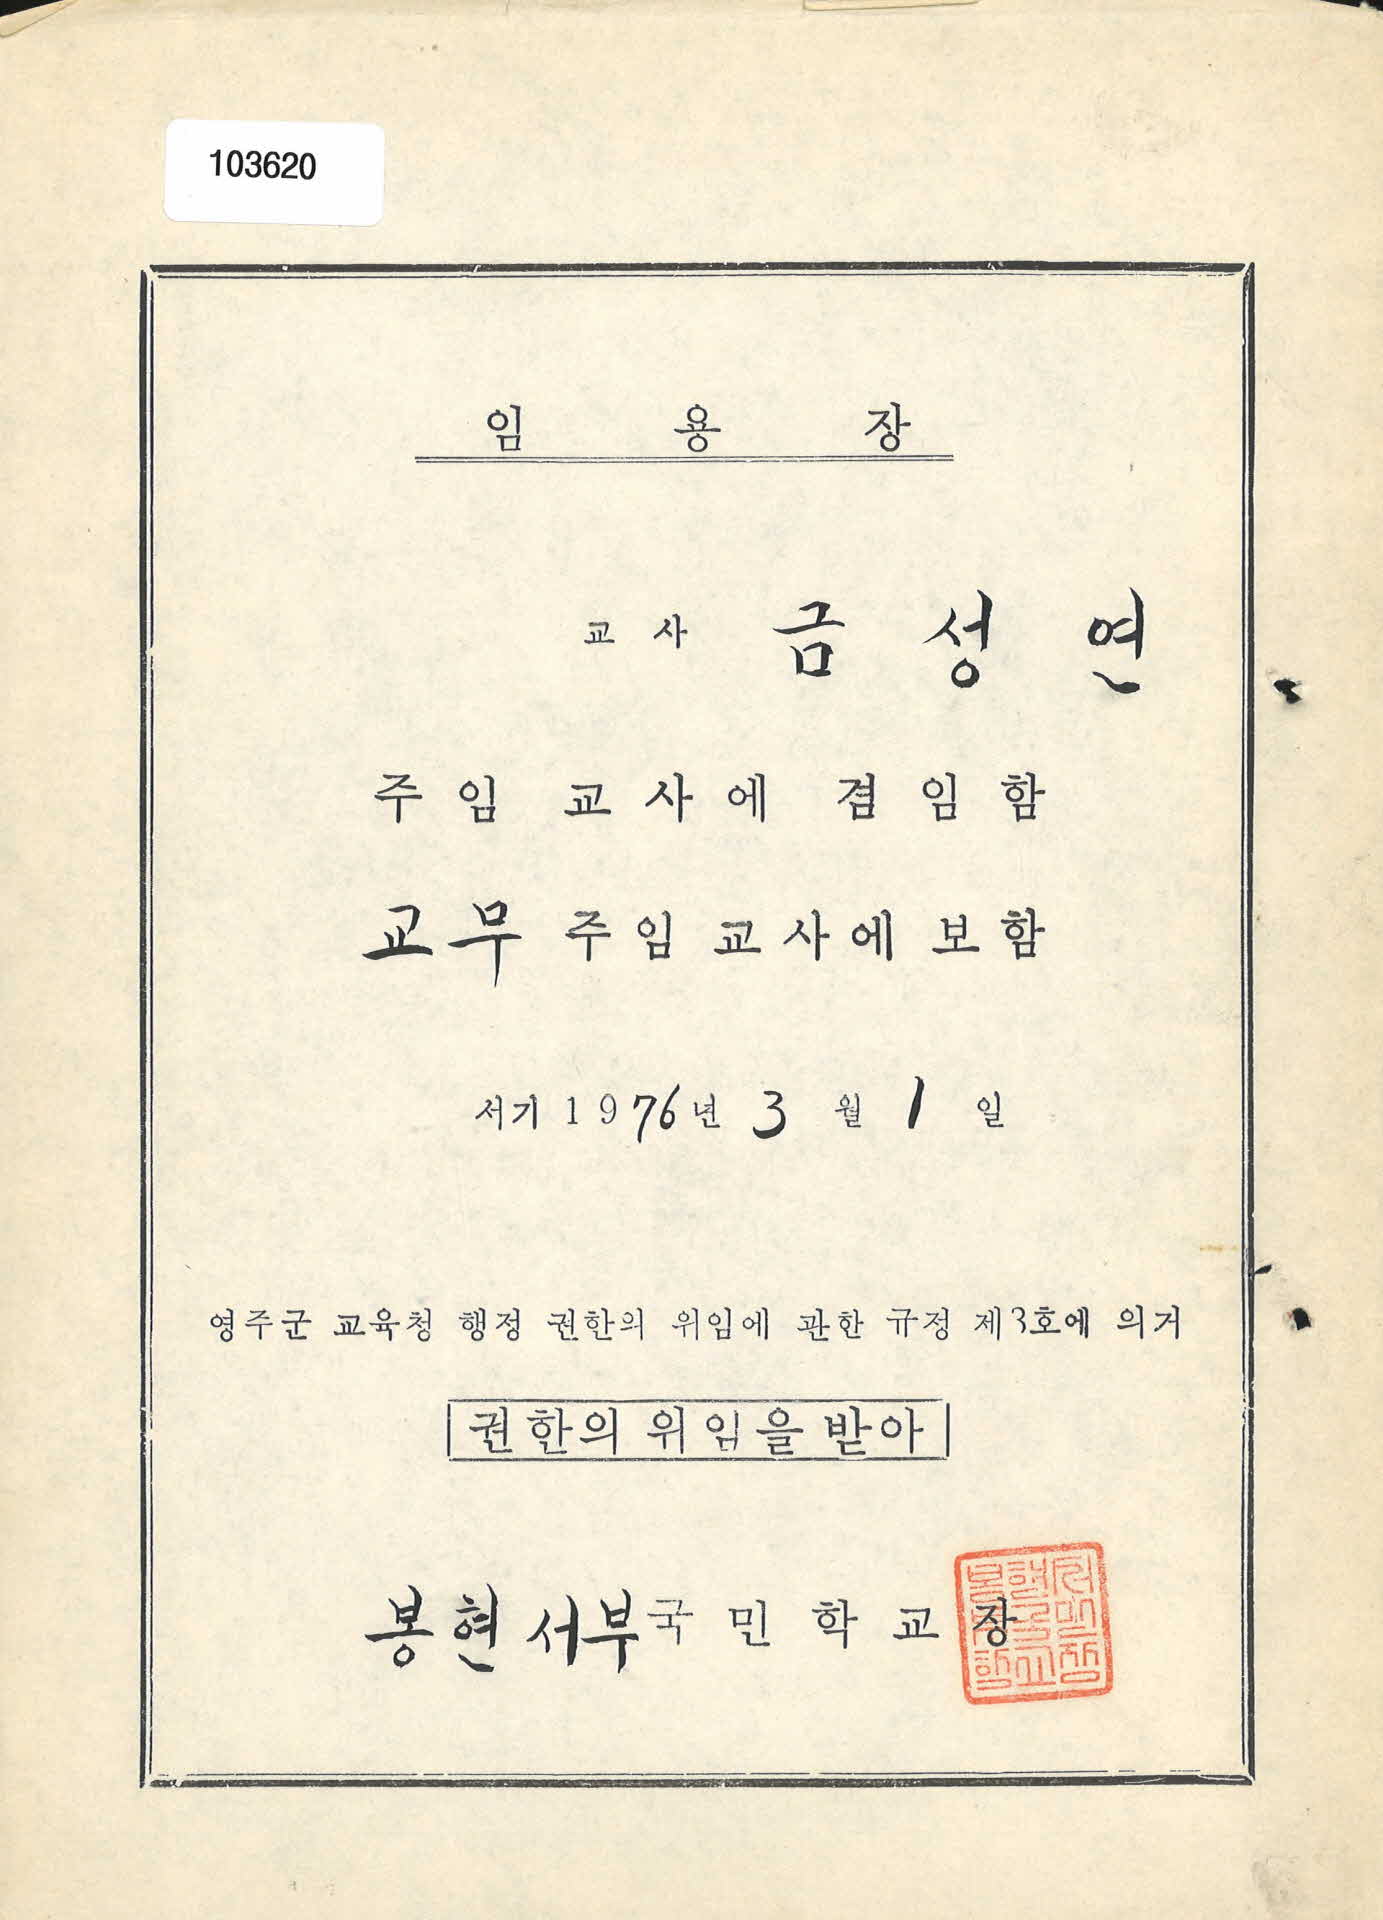 103620
임 용 장
교 사 금 성 연
주 임 교 사 에 겸 임 함
교 무 주 임 교 사 에 보 함
서기 1976년 3 월 1 일
영주군 교육청 행정 권한의 위임에 관한 규정 제3호에 의거
권한의 위임을 받아
봉현서부국 민 학 교 장